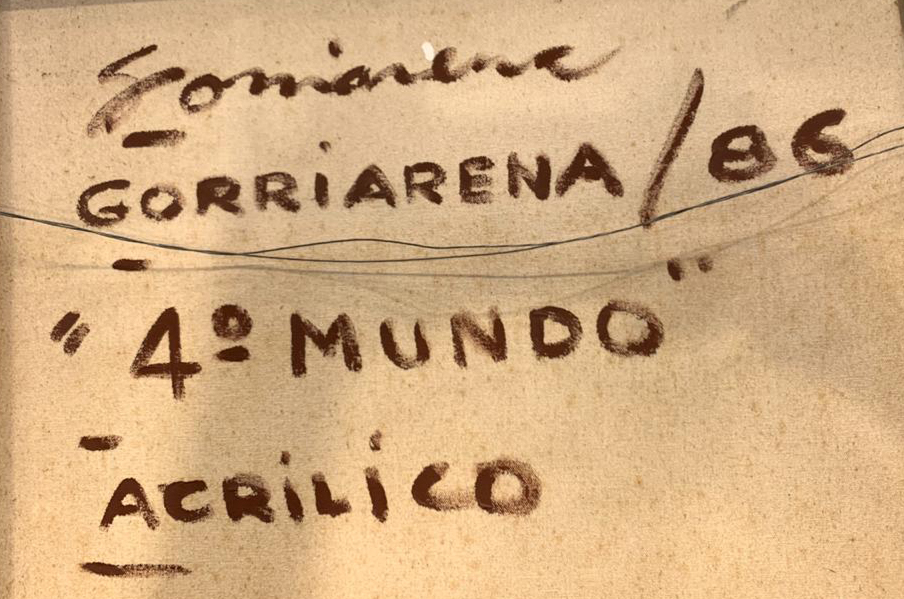 Gorriarena
- GORRIARENA / 86
- "4º MUNDO"
- ACRILICO